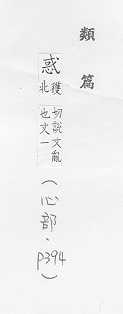 類篇
惑獲北切說文亂也文一(心部、p394)